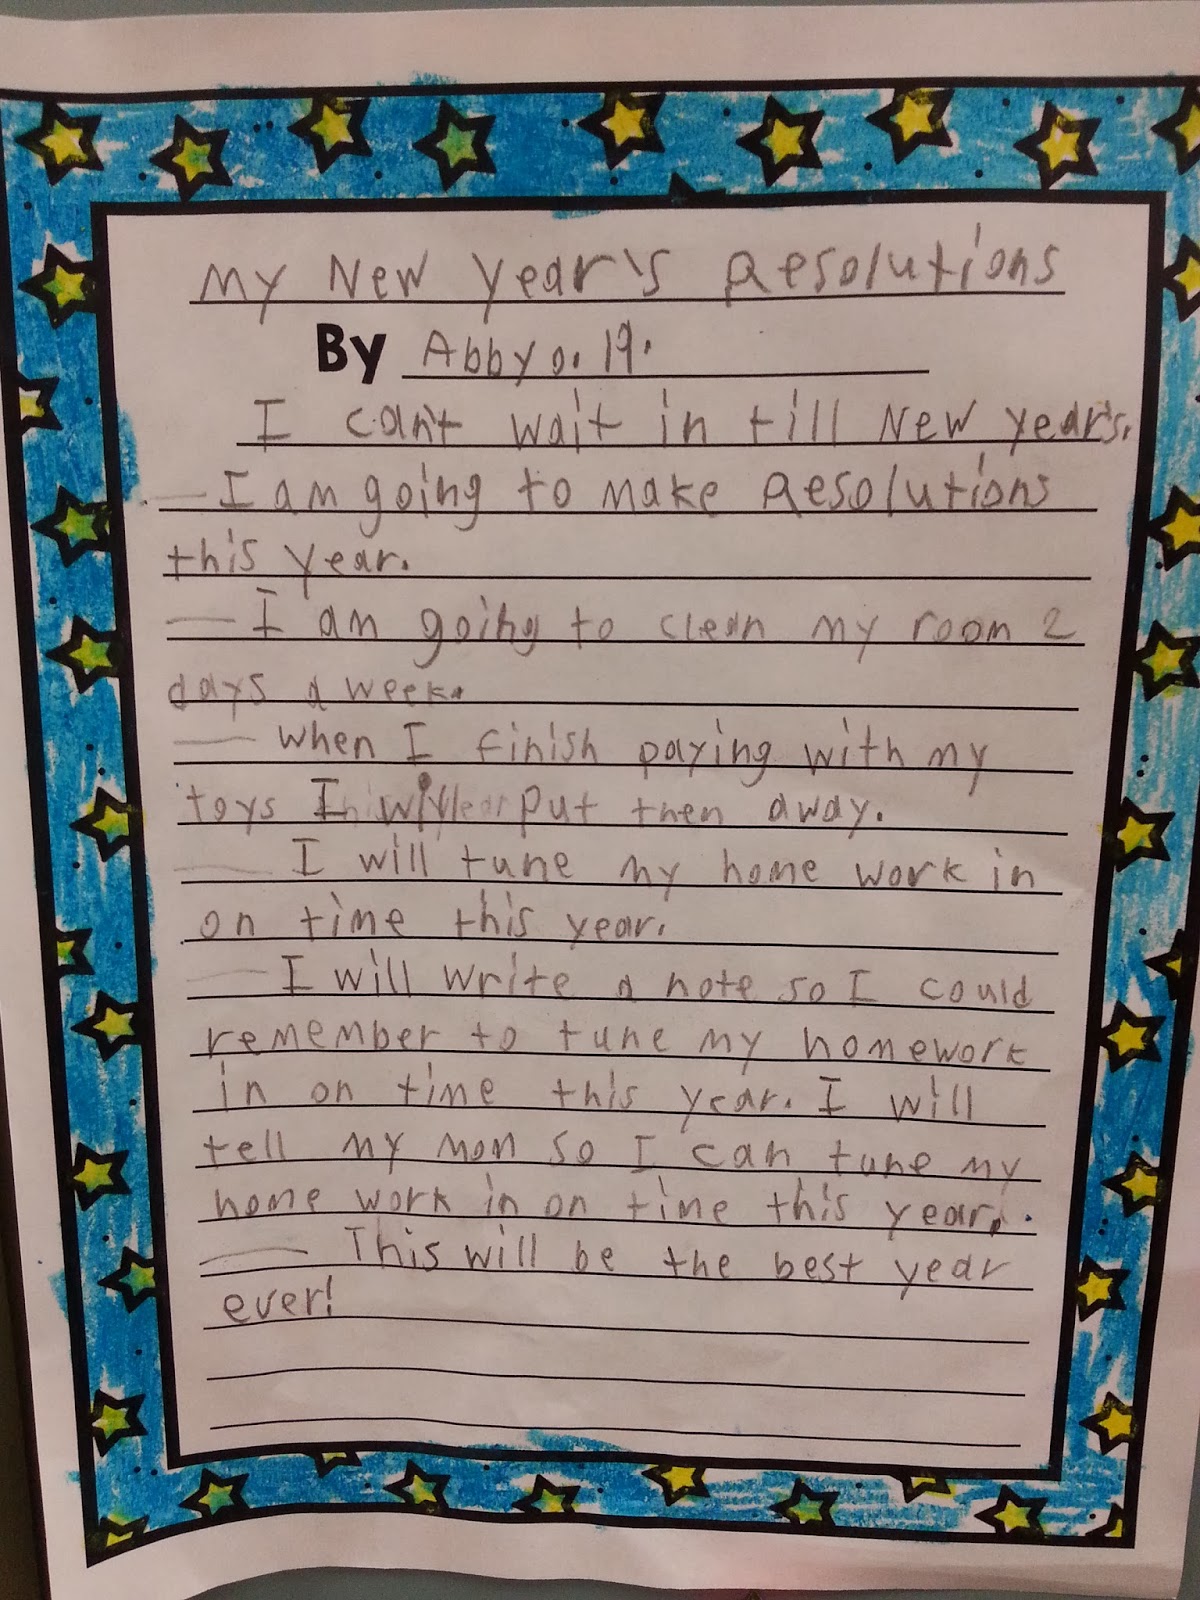 My New Year's Resolutions
By Abby o. 19.
I can't wait in till New Year's.
I am going to make Resolutions
this year.
I am going to clean my room 2
days a week.
When I finish paying with my
toys I will put then away.
I will tune my home work in
on time this year.
I will write a note so I could
remember to tune my homework
in on time this year. I will
tell my mom so I can tune my
home work in on time this year.
This will be the best year
ever!